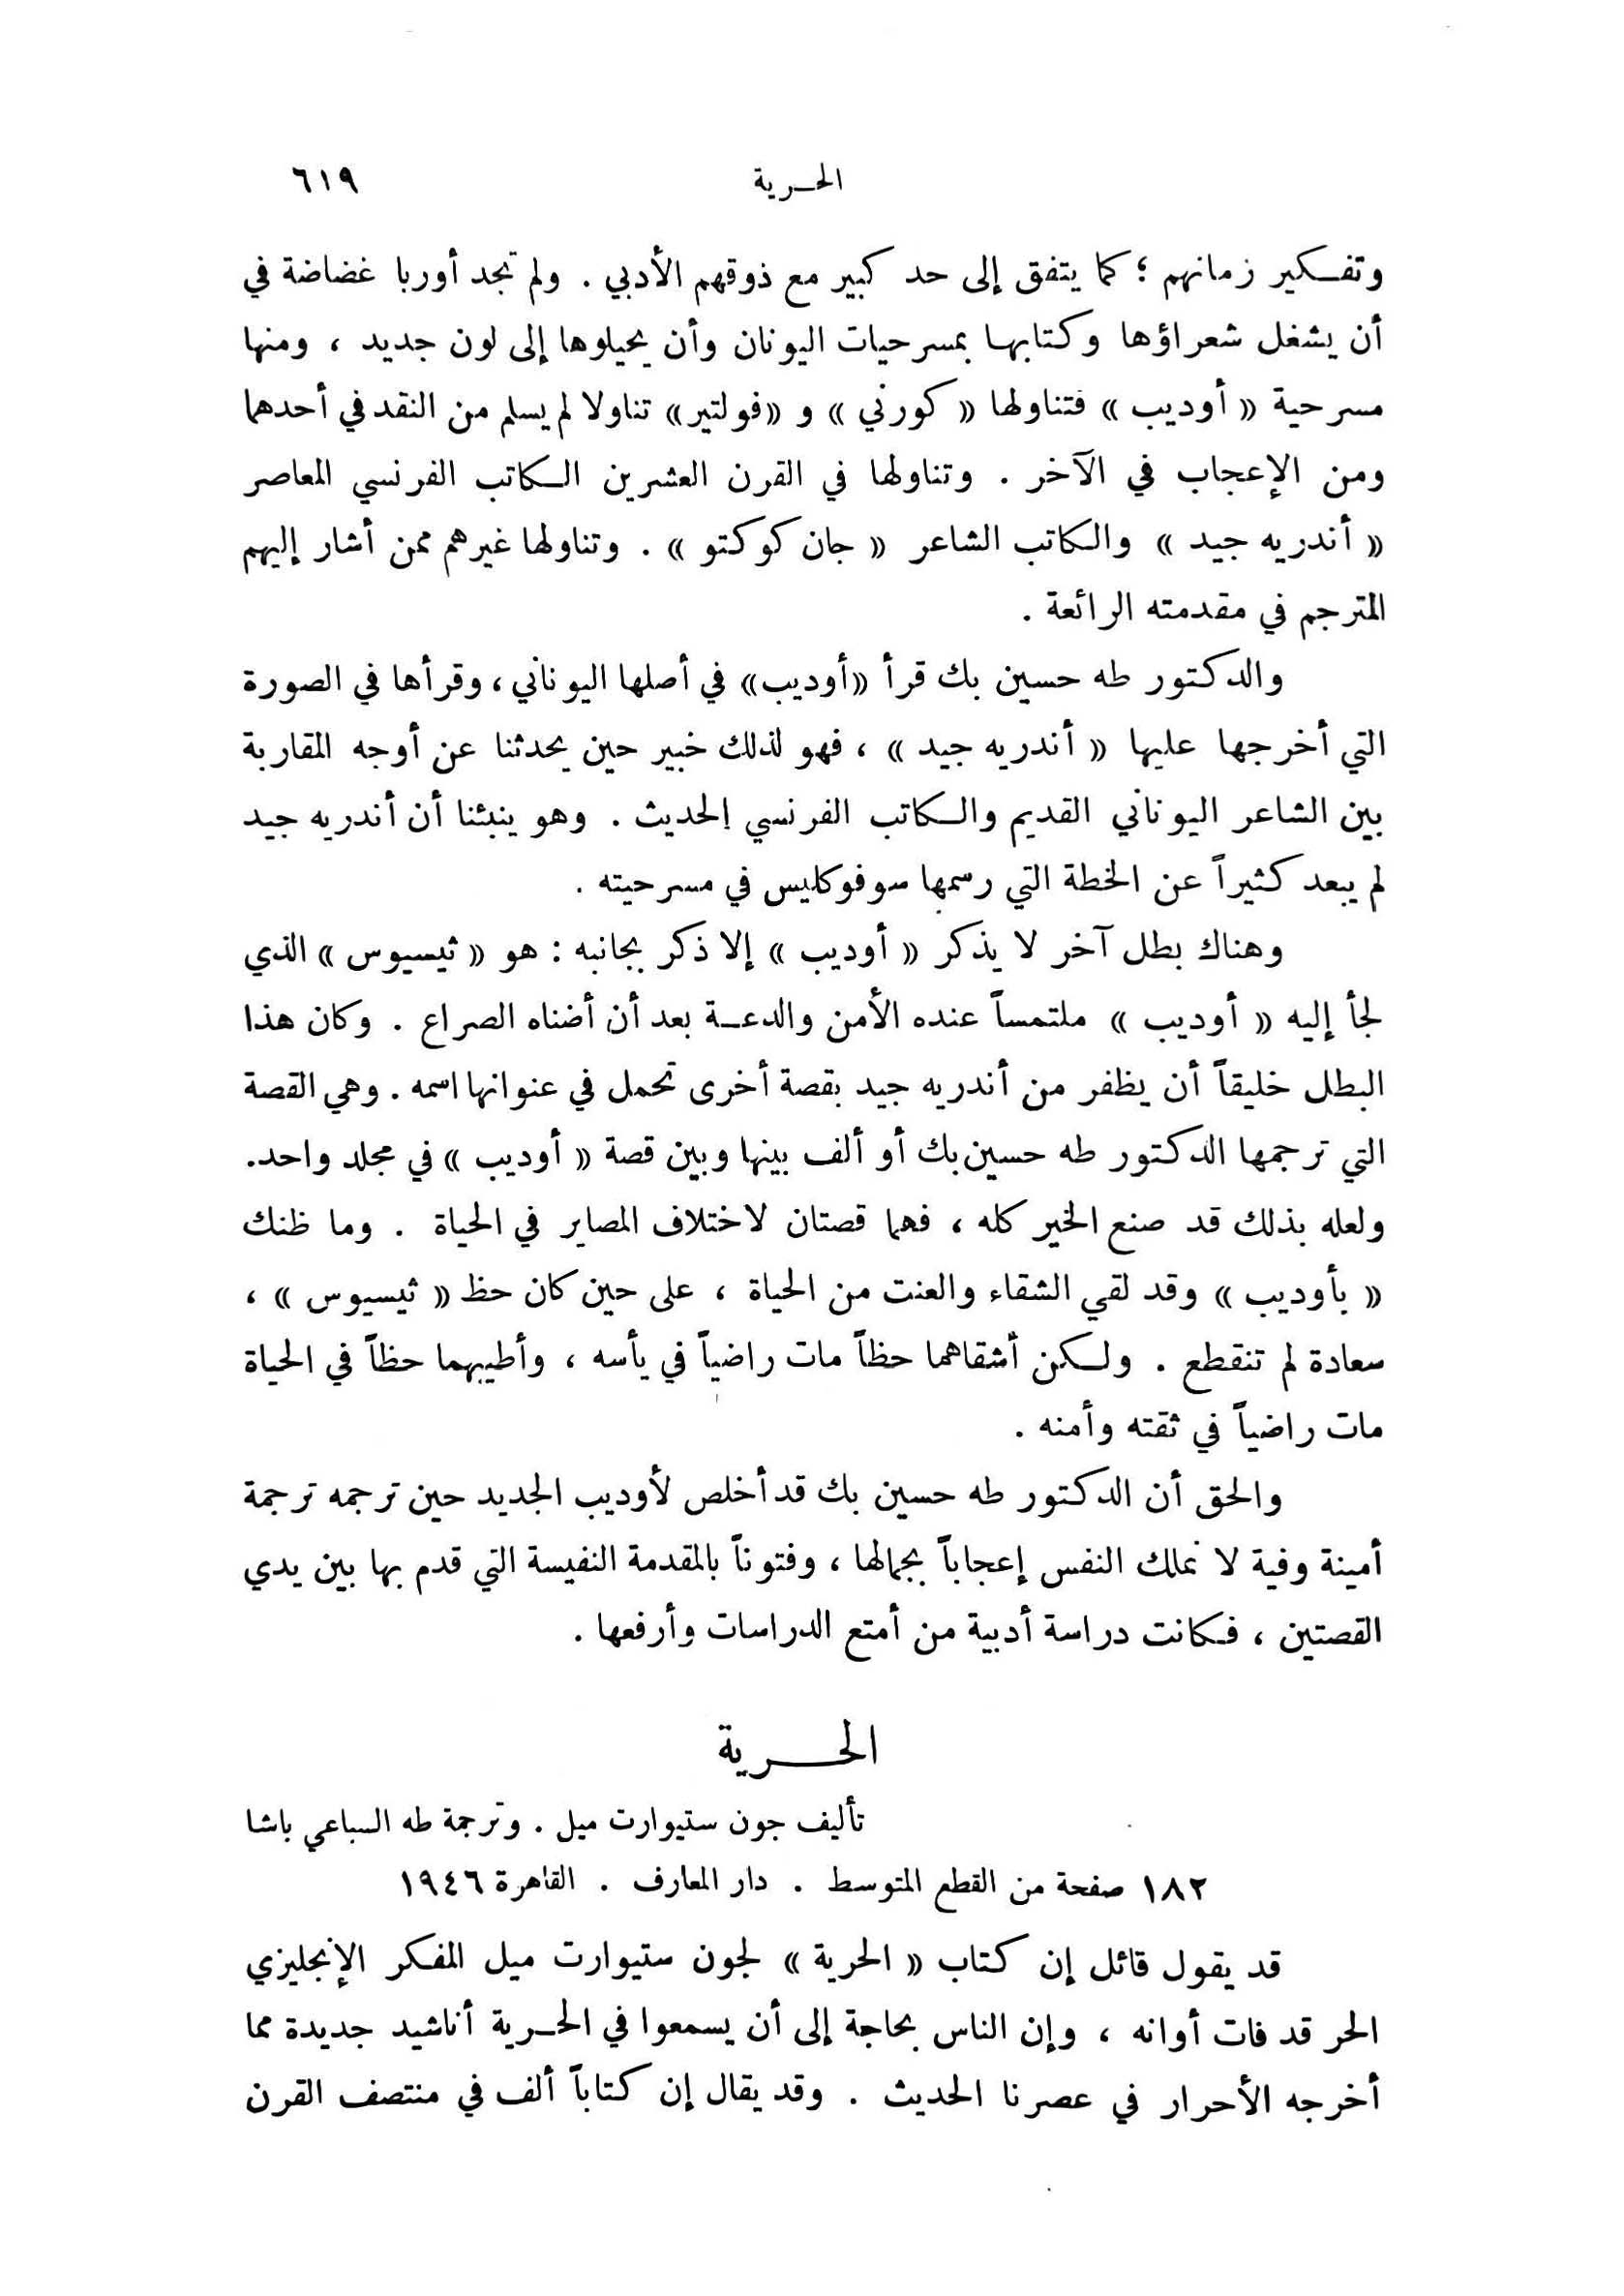 الحرية ٦١٩
وتفكير زمانهم ؛ كما يتفق إلى حد كبير مع ذوقهم الأدبي . ولم تجد أوربا غضاضة في
أن يشغل شعراؤها وكتابها بمسرحيات اليونان وأن يحيلوها إلى لون جديد ، ومنها
مسرحية « أوديب » فتناولها « كورني » و «فولتير» تناولا لم يسلم من النقد في أحدهما
ومن الإعجاب في الآخر . وتناولها في القرن العشرين الكاتب الفرنسي المعاصر
« أندريه جيد » والكاتب الشاعر « جان كوكتو » . وتناولها غيرهم ممن أشار إليهم
المترجم في مقدمته الرائعة .
والدكتور طه حسين بك قرأ «أوديب» في أصلها اليوناني ، وقرأها في الصورة
التي أخرجها عليها « أندريه جيد » ، فهو لذلك خبير حين يحدثنا عن أوجه المقاربة
بين الشاعر اليوناني القديم والكاتب الفرنسي الحديث . وهو ينبئنا أن أندريه جيد
لم يبعد كثيراً عن الخطة التي رسمها سوفوكليس في مسرحيته .
وهناك بطل آخر لا يذكر « أوديب » إلا ذكر بجانبه : هو « ثيسيوس » الذي
لجأ إليه « أوديب » ملتمساً عنده الأمن والدعة بعد أن أضناه الصراع . وكان هذا
البطل خليقاً أن يظفر من أندريه جيد بقصة أخرى تحمل في عنوانها اسمه . وهي القصة
التي ترجمها الدكتور طه حسين بك أو ألف بينها وبين قصة « أوديب » في مجلد واحد.
ولعله بذلك قد صنع الخير كله ، فهما قصتان لاختلاف المصاير في الحياة . وما ظنك
« بأوديب » وقد لقي الشقاء والعنت من الحياة ، على حين كان حظ « ثيسيوس » ،
سعادة لم تنقطع . ولكن أشقاهما حظاً مات راضياً في يأسه ، وأطيبهما حظاً في الحياة
مات راضياً في ثقته وأمنه .
والحق أن الدكتور طه حسين بك قد أخلص لأوديب الجديد حين ترجمه ترجمة
أمينة وفية لا نملك النفس إعجاباً بجمالها ، وفتوناً بالمقدمة النفيسة التي قدم بها بين يدي
القصتين ، فكانت دراسة أدبية من أمتع الدراسات وأرفعها .
الحرية
تأليف جون ستيوارت ميل . وترجمة طه السباعي باشا
١٨٢ صفحة من القطع المتوسط . دار المعارف . القاهرة ١٩٤٦
قد يقول قائل إن كتاب « الحرية » لجون ستيوارت ميل المفكر الإنجليزي
الحر قد فات أوانه ، وإن الناس بحاجة إلى أن يسمعوا في الحرية أناشيد جديدة مما
أخرجه الأحرار في عصرنا الحديث . وقد يقال إن كتاباً ألف في منتصف القرن